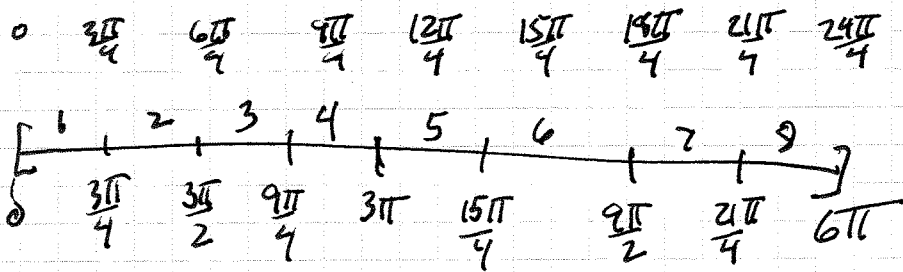 0 3π/4 6π/4 9π/4 12π/4 15π/4 18π/4 21π/4 24π/4
1 2 3 4 5 6 7 8
[ ]
0 3π/4 3π/2 9π/4 3π 15π/4 9π/2 21π/4 6π